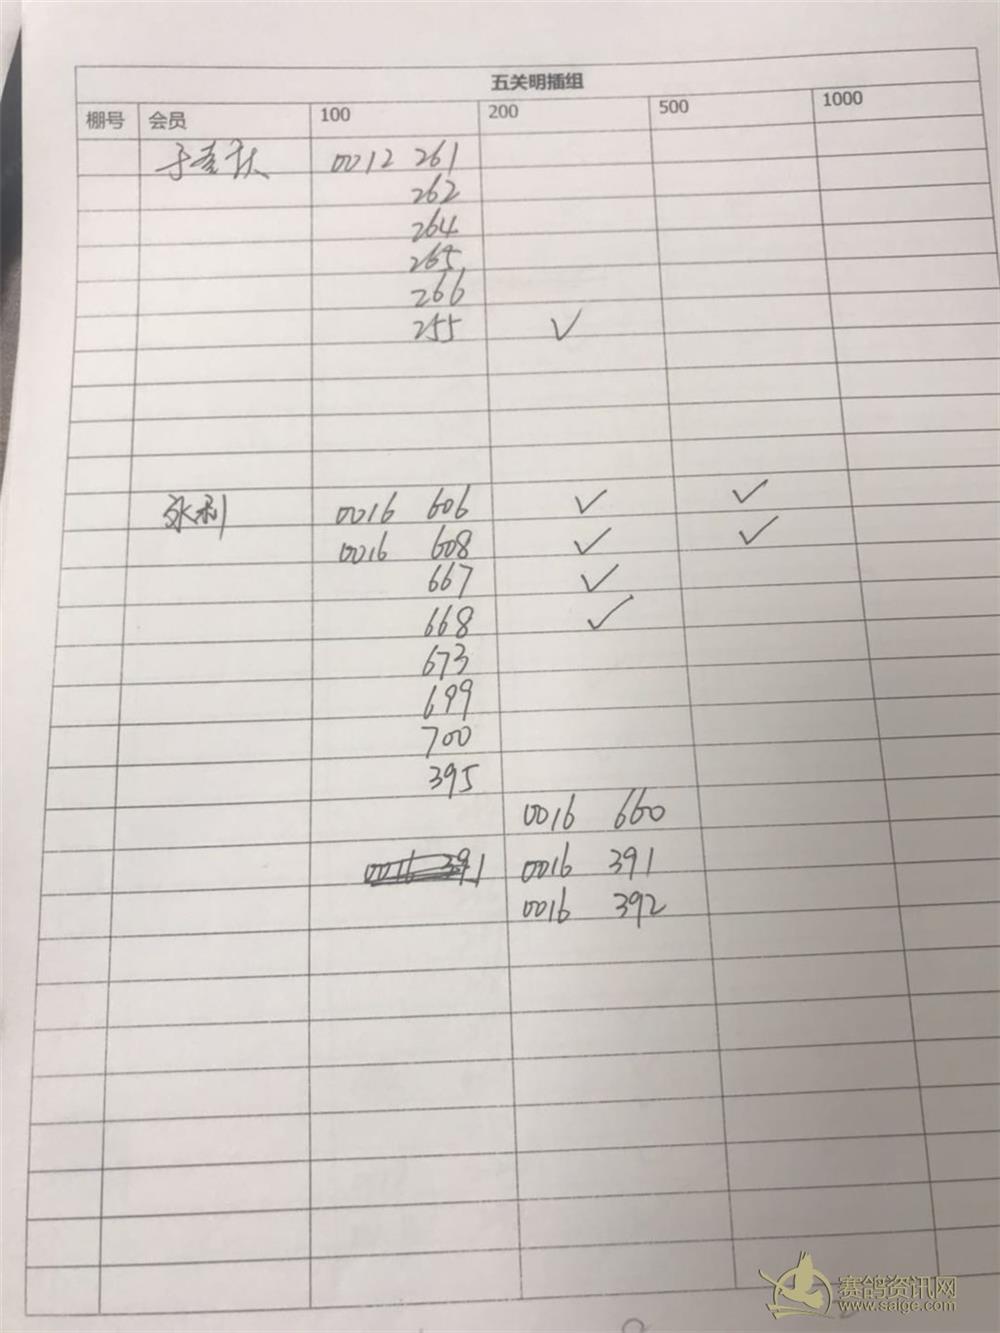 五关明插组
棚号 会员 100 200 500 1000
0012 261
262
264
265
266
255 ✓
永利 0016 606 ✓ ✓
0016 608 ✓ ✓
667 ✓
668 ✓
673
699
700
395
0016 660
0016 391 0016 391
0016 392
赛鸽资讯网
www.saige.com